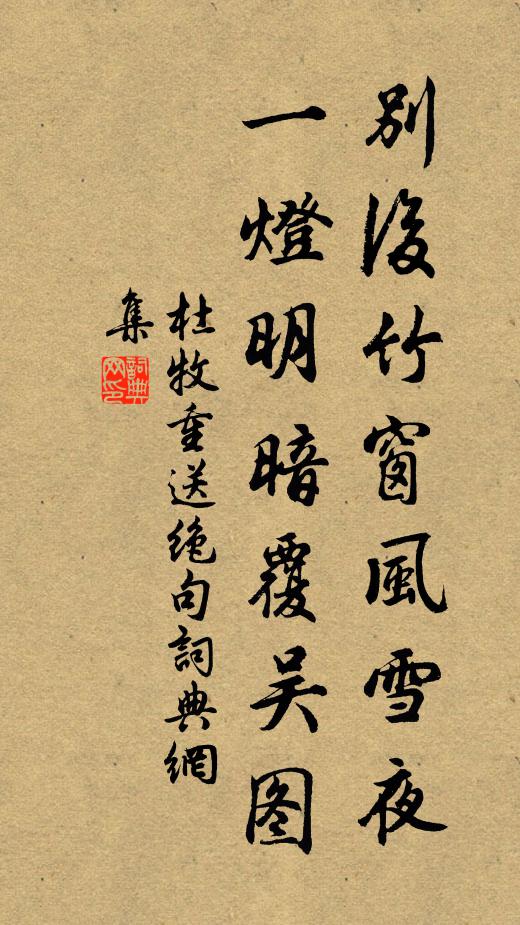 別後竹窗風雪夜
一燈明暗覆吴图
杜牧重送絕句詞典網
集
詞典网印